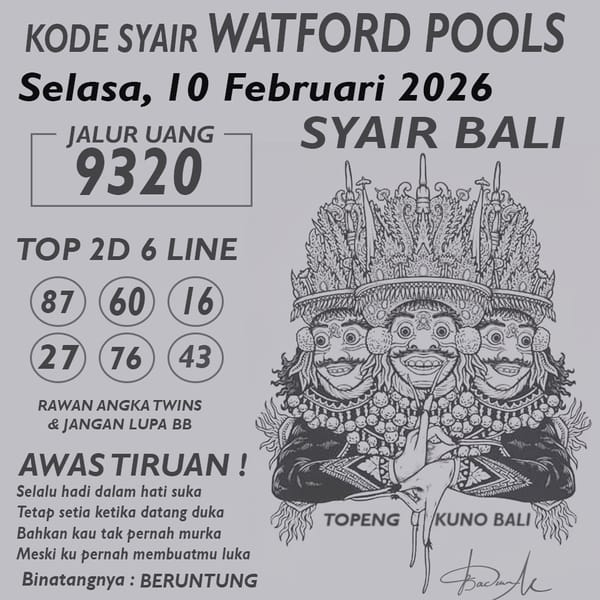 KODE SYAIR WATFORD POOLS
Selasa, 10 Februari 2026
SYAIR BALI
JALUR UANG
9320
TOP 2D 6 LINE
87 60 16
27 76 43
RAWAN ANGKA TWINS
& JANGAN LUPA BB
AWAS TIRUAN !
Selalu hadi dalam hati suka
Tetap setia ketika datang duka
Bahkan kau tak pernah murka
Meski ku pernah membuatmu luka
Binatangnya : BERUNTUNG
TOPENG KUNO BALI